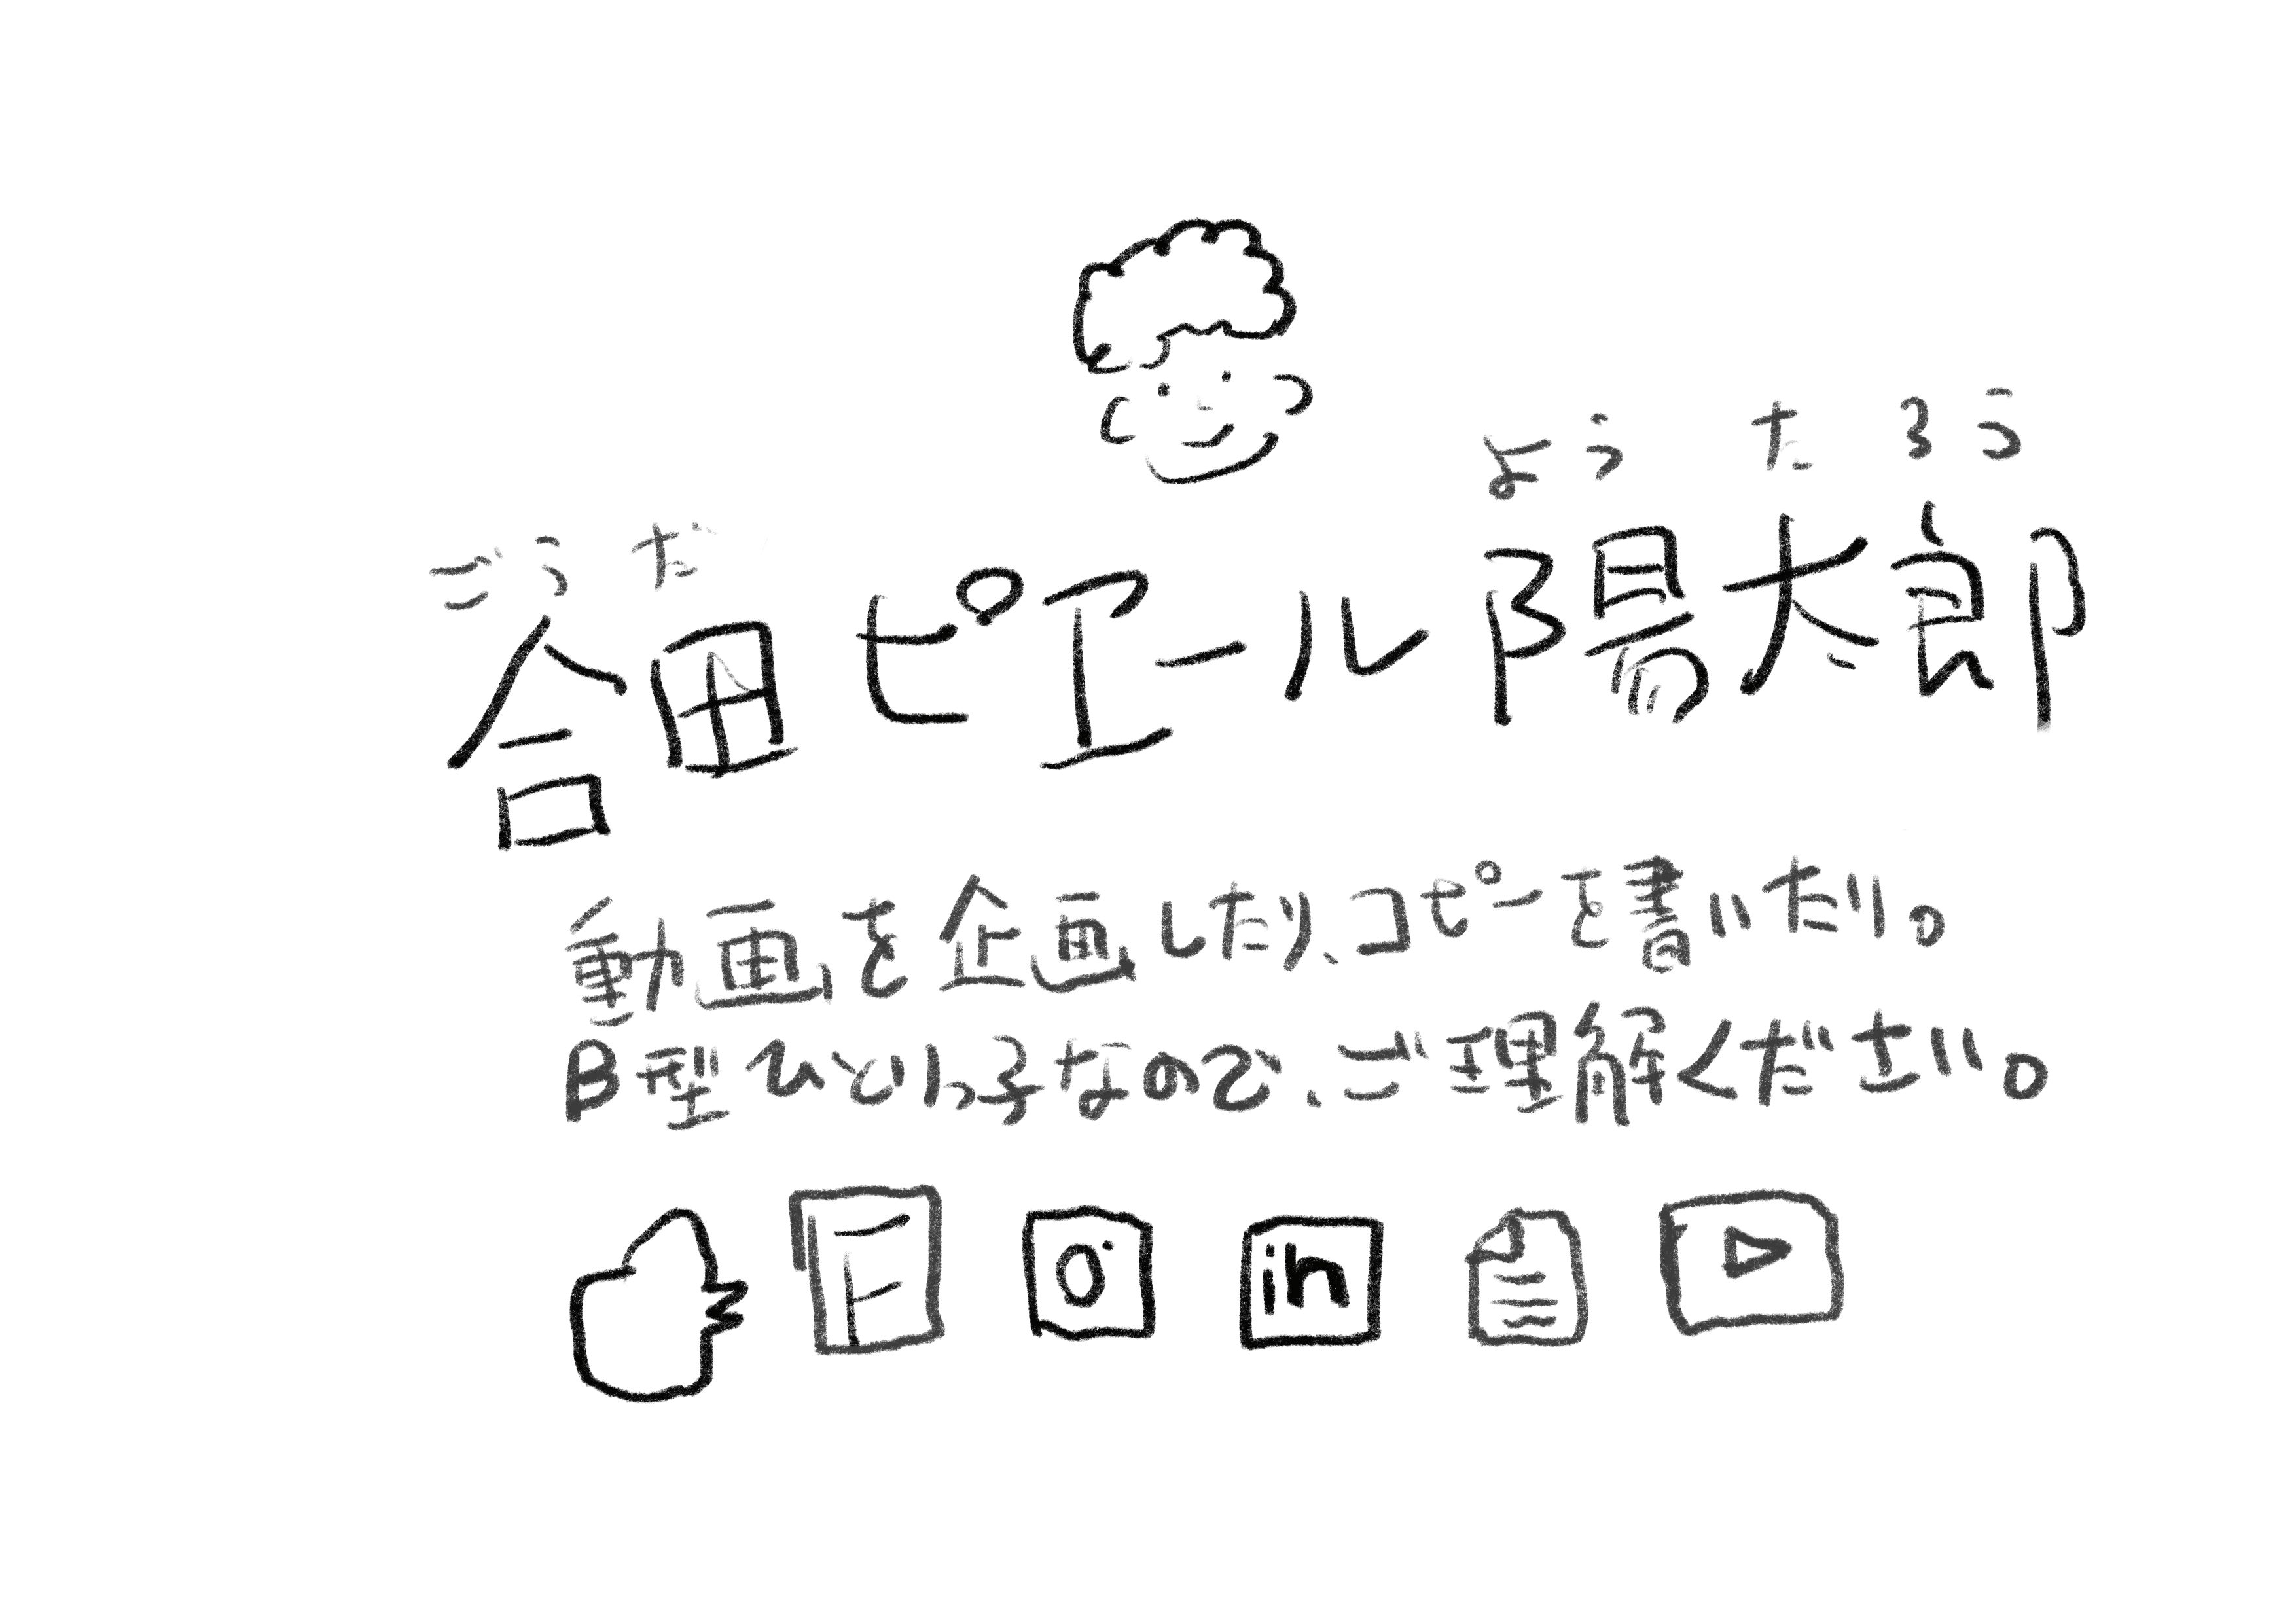 ようたろう
ごうだ
合田ピエール陽太郎
動画を企画したり、コピーを書いたり。
B型ひとりっ子なので、ご理解ください。
in